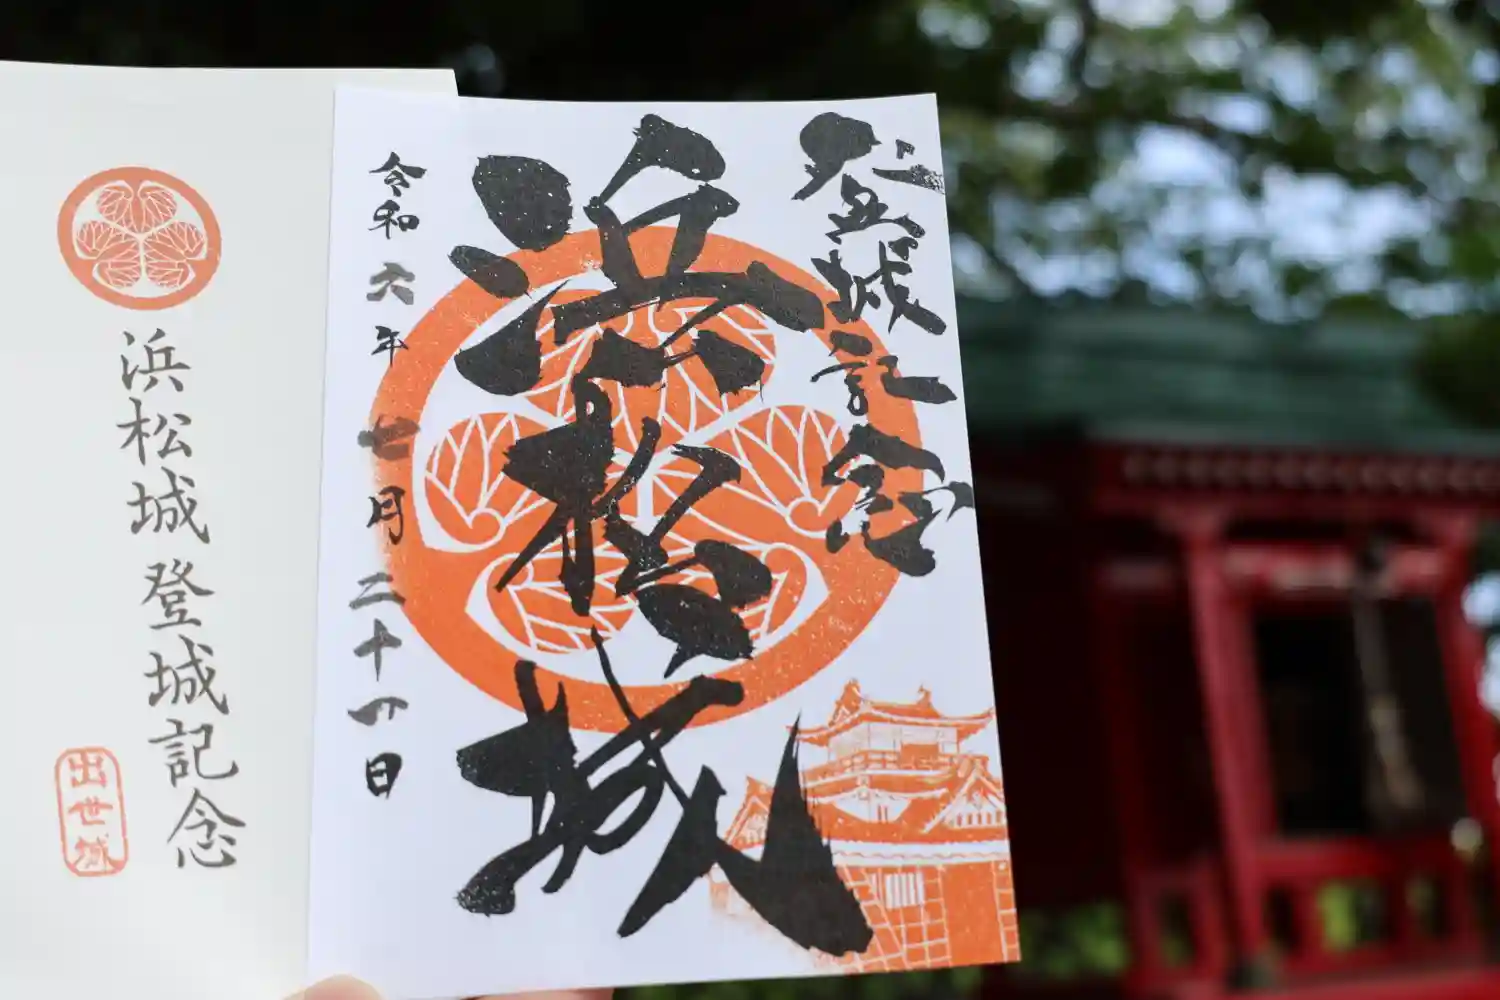 登城記念
浜松城
令和六年七月二十四日
浜松城登城記念
出世城